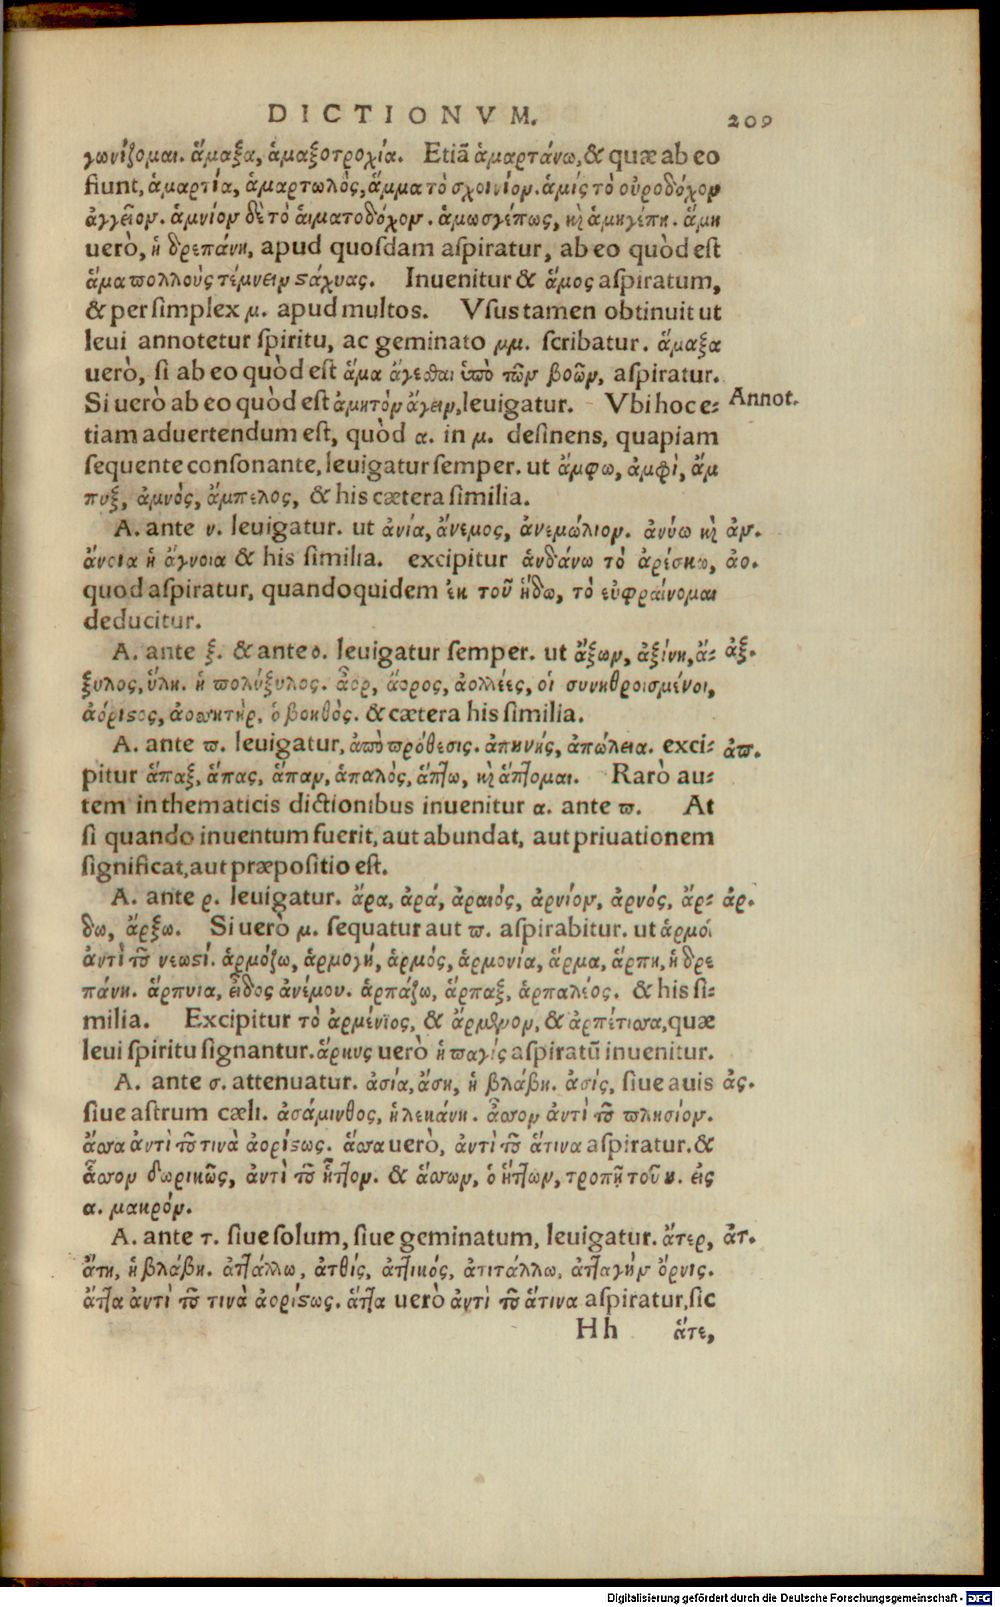 DICTIONVM. 209
γωνίζομαι. ἅμαξα, ἁμαξοτροχία. Etiã ἁμαρτάνω, & quæ ab eo
fiunt, ἁμαρτία, ἁμαρτωλὸς, ἅμμα τὸ σχοινίον. ἁμίς τὸ οὐροδόχον
ἀγγεῖον. ἁμνίον δὲ τὸ αἱματοδόχον. ἁμωσγέπως, καὶ ἁμηγέπη. ἅμη
uerò, ἡ δρεπάνη, apud quoſdam aſpiratur, ab eo quòd eſt
ἅμα πολλοὺς τέμνειν στάχυας. Inuenitur & ἅμος aſpiratum,
& per ſimplex μ. apud multos. Vſus tamen obtinuit ut
leui annotetur ſpiritu, ac geminato μμ. ſcribatur. ἅμαξα
uerò, ſi ab eo quòd eſt ἅμα ἄγεσθαι ὑπὸ τῶν βοῶν, aſpiratur.
Si uerò ab eo quòd eſt ἀμητὸν ἄγειν, leuigatur. Vbi hoc e⸗ Annot.
tiam aduertendum eſt, quòd α. in μ. deſinens, quapiam
ſequente conſonante, leuigatur ſemper. ut ἄμφω, ἀμφὶ, ἄμ
πυξ, ἀμνὸς, ἄμπελος, & his cætera ſimilia.
A. ante ν. leuigatur. ut ἀνία, ἄνεμος, ἀνεμώλιον. ἀνύω καὶ ἀν.
ἄνοια ἡ ἄγνοια & his ſimilia. excipitur ἁνδάνω τὸ ἀρέσκω, ἀο.
quod aſpiratur, quandoquidem ἐκ τοῦ ἥδω, τὸ εὐφραίνομαι
deducitur.
A. ante ξ. & ante ο. leuigatur ſemper. ut ἄξων, ἀξίνη, ἄ⸗ ἀξ.
ξυλος, ὕλη. ἡ πολύξυλος. ἆορ, ἄορος, ἀολλέες, οἱ συνηθροισμένοι,
ἀόριστος, ἀοσσητὴρ, ὁ βοηθὸς. & cætera his ſimilia.
A. ante π. leuigatur, ἀπὸ πρόθεσις. ἀπηνής, ἀπώλεια. exci⸗ ἀπ.
pitur ἅπαξ, ἅπας, ἅπαν, ἁπαλὸς, ἅπτω, καὶ ἅπτομαι. Rarò au⸗
tem in thematicis dictionibus inuenitur α. ante π. At
ſi quando inuentum fuerit, aut abundat, aut priuationem
ſignificat, aut præpoſitio eſt.
A. ante ρ. leuigatur. ἄρα, ἀρά, ἀραιός, ἀρνίον, ἀρνός, ἄρ⸗ ἀρ.
δω, ἄρξω. Si uerò μ. ſequatur aut π. aſpirabitur. ut ἁρμόι
ἀντὶ τοῦ νεωστί. ἁρμόζω, ἁρμογή, ἁρμός, ἁρμονία, ἅρμα, ἅρπη, ἡ δρε
πάνη. ἅρπυια, εἶδος ἀνέμου. ἁρπάζω, ἅρπαξ, ἁρπαλέος. & his ſi⸗
milia. Excipitur τὸ ἀρμένιος, & ἄρμενον, & ἀρπέτισσα, quæ
leui ſpiritu ſignantur. ἅρκυς uerò ἡ παγίς aſpiratũ inuenitur.
A. ante σ. attenuatur. ἀσία, ἄση, ἡ βλάβη. ἀσίς, ſiue auis ἀς.
ſiue aſtrum cæli. ἀσάμινθος, ἡ λεκάνη. ἆσσον ἀντὶ τοῦ πλησίον.
ἄσσα ἀντὶ τοῦ τινὰ ἀορίστως. ἅσσα uerò, ἀντὶ τοῦ ἅτινα aſpiratur. &
ἆσσον δωρικῶς, ἀντὶ τοῦ ἧττον. & ἅσσων, ὁ ἥττων, τροπῇ τοῦ η. εἰς
α. μακρόν.
A. ante τ. ſiue ſolum, ſiue geminatum, leuigatur. ἄτερ, ἀτ.
ἄτη, ἡ βλάβη. ἀττάλλω, ἀτθίς, ἀττικός, ἀτιτάλλω, ἀτταγὴν ὄρνις.
ἄττα ἀντὶ τοῦ τινὰ ἀορίστως. ἅττα uerò ἀντὶ τοῦ ἅτινα aſpiratur, ſic
Hh ἅτε,
Digitalisierung gefördert durch die Deutsche Forschungsgemeinschaft - DFG